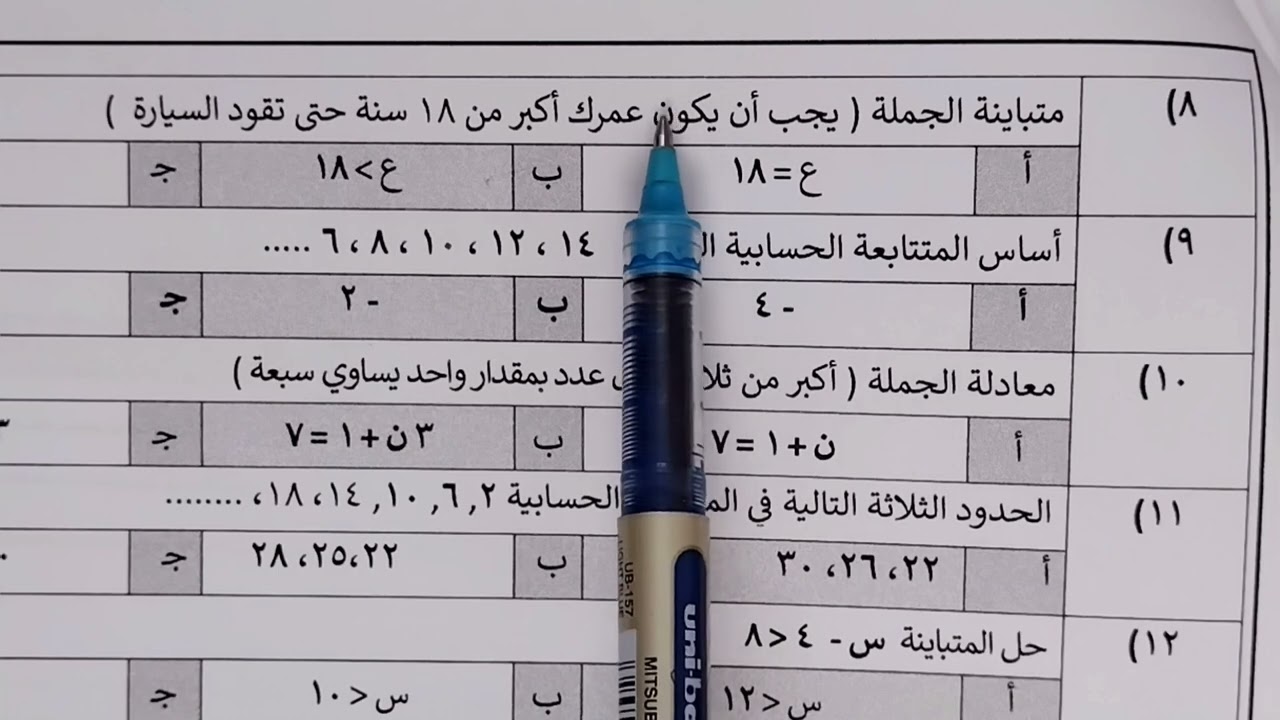 ٨) متباينة الجملة ( يجب أن يكون عمرك أكبر من ١٨ سنة حتى تقود السيارة )
أ ع = ١٨ ب ع > ١٨ ج
٩) أساس المتتابعة الحسابية ١٤ ، ١٢ ، ١٠ ، ٨ ، ٦ .....
أ - ٤ ب - ٢ ج
١٠) معادلة الجملة ( أكبر من عدد بمقدار واحد يساوي سبعة )
أ ن + ١ = ٧ ب ٣ ن + ١ = ٧ ج
١١) الحدود الثلاثة التالية في الحسابية ٢ , ٦ , ١٠ , ١٤ ، ١٨ ، ........
أ ٢٢ ، ٢٦ ، ٣٠ ب ٢٢ ، ٢٥ ، ٢٨ ج
١٢) حل المتباينة س - ٤ < ٨
أ س < ١٢ ب س < ١٠ ج
UB-157